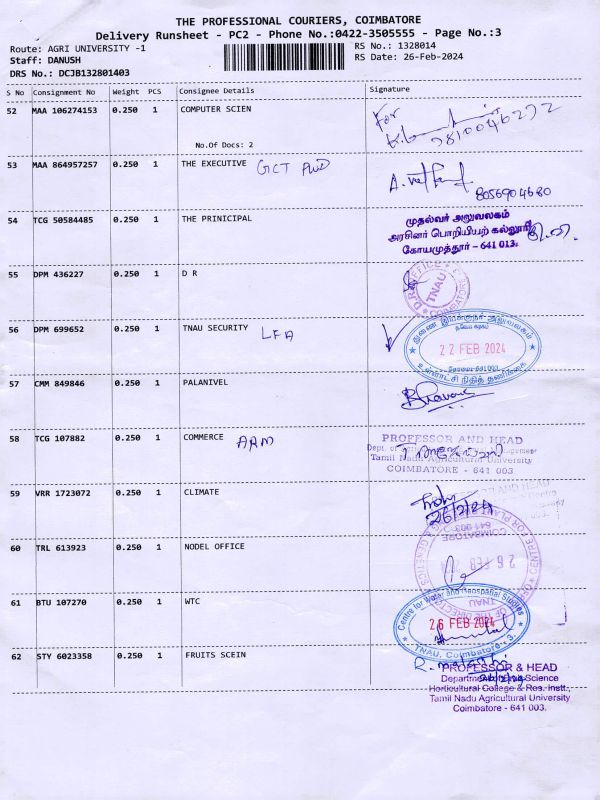 THE PROFESSIONAL COURIERS, COIMBATORE
Delivery Runsheet - PC2 - Phone No.:0422-3505555 - Page No.:3
Route: AGRI UNIVERSITY -1
RS No.: 1328014
Staff: DANUSH
RS Date: 26-Feb-2024
DRS No.: DCJB132801403
S No Consignment No Weight PCS Consignee Details Signature
52 MAA 106274153 0.250 1 COMPUTER SCIEN
For
9810046272
No.Of Docs: 2
53 MAA 864957257 0.250 1 THE EXECUTIVE GCT PWD
8056904680
54 TCG 50584485 0.250 1 THE PRINICIPAL
முதல்வர் அலுவலகம்
அரசினர் பொறியியற் கல்லூரி
கோயமுத்தூர் - 641 013.
55 DPM 436227 0.250 1 D R
D.R. OFFICE
TNAU
COIMBATORE
56 DPM 699652 0.250 1 TNAU SECURITY LFA
துணை இயக்குநர் அலுவலகம்
22 FEB 2024
உள்ளாட்சி நிதித் தணிக்கை
57 CMM 849846 0.250 1 PALANIVEL
58 TCG 107882 0.250 1 COMMERCE ARM
PROFESSOR AND HEAD
Tamil Nadu Agricultural University
COIMBATORE - 641 003
59 VRR 1723072 0.250 1 CLIMATE
26/2/24
60 TRL 613923 0.250 1 NODEL OFFICE
COIMBATORE
641 003
26 FEB
TNAU
61 BTU 107270 0.250 1 WTC
Centre for Water and Geospatial Studies
26 FEB 2024
TNAU, Coimbatore - 3.
62 STY 6023358 0.250 1 FRUITS SCEIN
PROFESSOR & HEAD
Department of Fruit Science
Horticultural College & Res. Instt.,
Tamil Nadu Agricultural University
Coimbatore - 641 003.